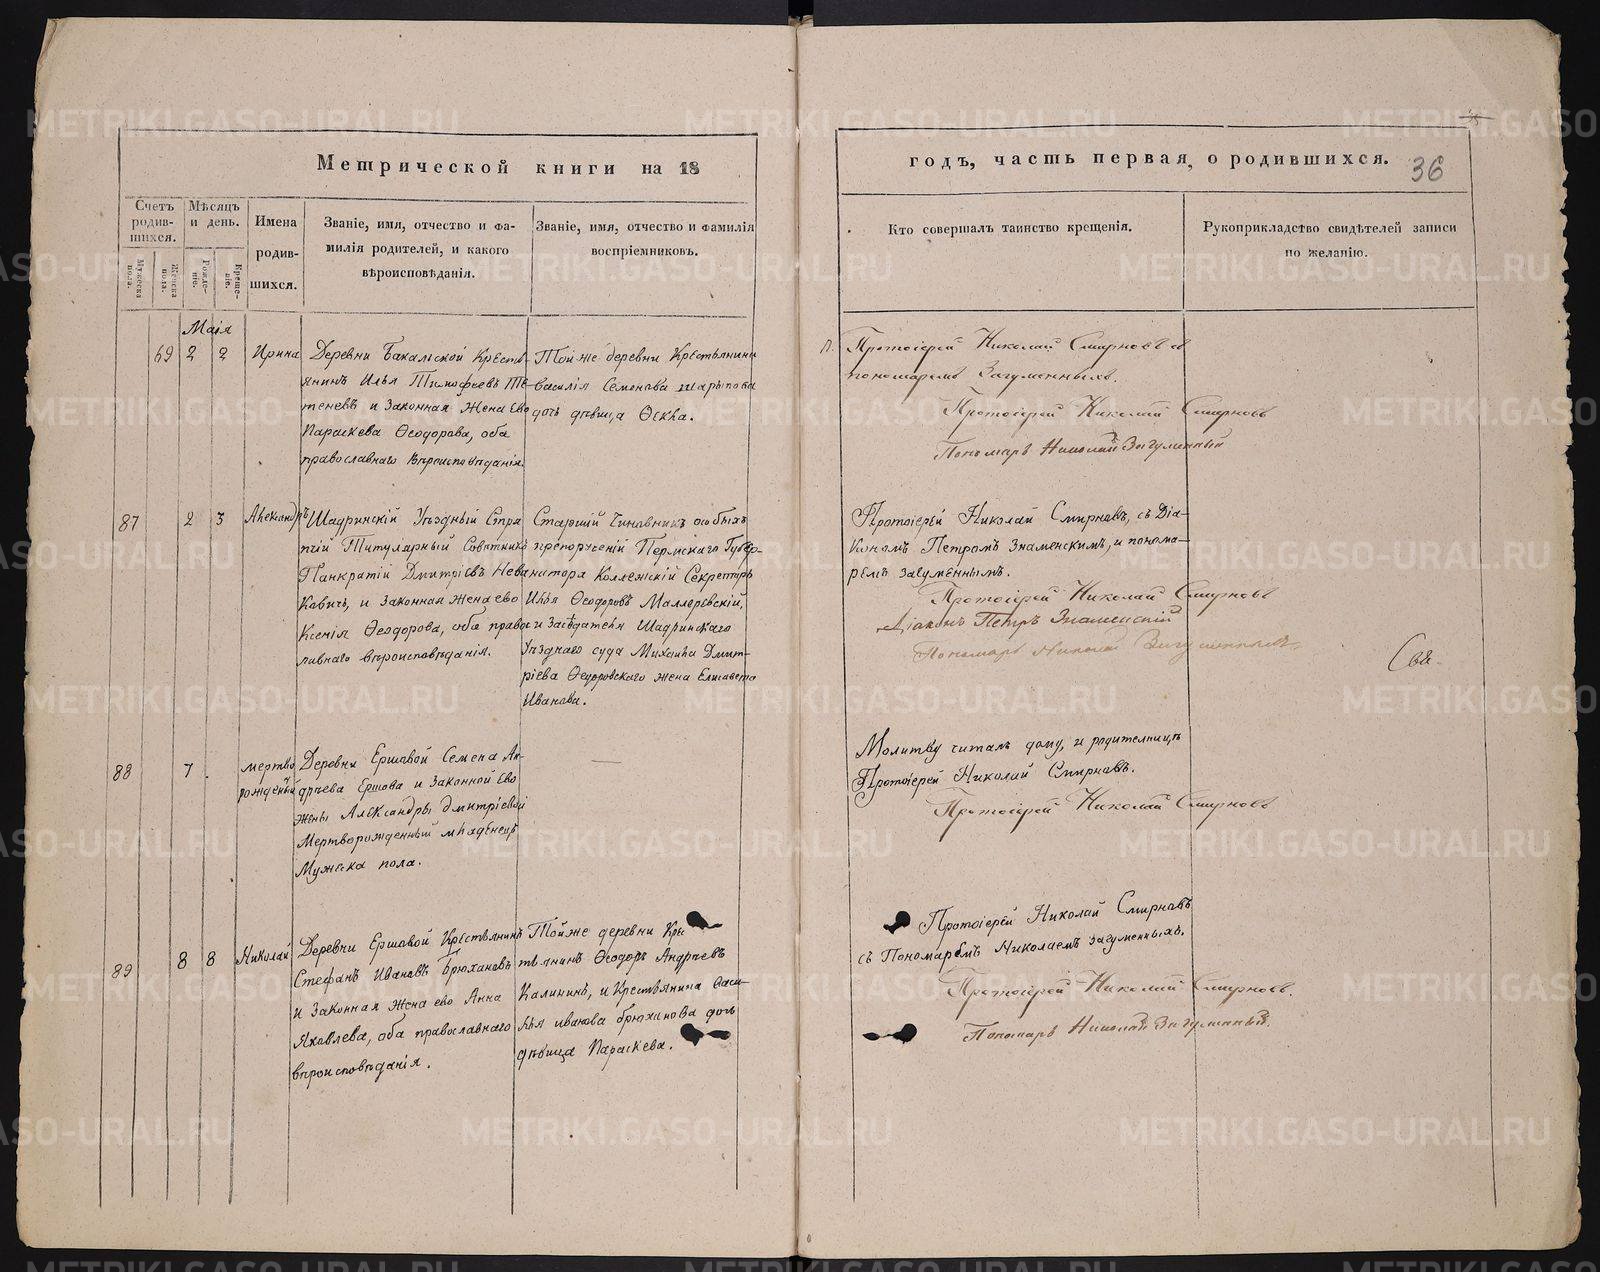 Метрической книги на 18
Счетъ родив-шихся.
Мужеска пола.
Женска пола.
Мѣсяцъ и день.
Рожде-нiе.
Креще-нiе.
Имена родив-шихся.
Званiе, имя, отчество и фа-
милiя родителей, и какого
вѣроисповѣданiя.
Званiе, имя, отчество и фамилiя
воспрiемниковъ.
годъ, часть первая, о родившихся.
36
Кто совершалъ таинство крещенiя.
Рукоприкладство свидѣтелей записи
по желанiю.
Маiя
69 2 2 Ирина
Деревни Бакальской Кресть-
янинъ Илья Тимофеевъ Те-
теневъ и Законная Жена Ево
Параскева Ѳеодорова, оба
православнаго Вѣроисповѣданiя.
Той же деревни Крестьянина
Василiя Семенова Шарыпова
дочь дѣвица Ѳекла.
Протоiерей Николай Смирновъ съ
пономаремъ Загуменныхъ.
Протоiерей Николай Смирновъ
Пономарь Николай Загуменный
87 2 3 Александръ
Шадринскiй Уѣздный Стряп
чiй Титулярный Совѣтникъ
Панкратiй Дмитрiевъ Нева
Ковичь, и Законная Жена ево
Ксенiя Ѳеодорова, оба правос
лавнаго вѣроисповѣданiя.
Старшiй Чиновникъ особыхъ
препорученiй Пермскаго Губер-
натора Коллежскiй Секретарь
Илья Ѳеодоровъ Маллеревскiй,
и Засѣдателя Шадринскаго
Уѣзднаго суда Михаила Дмит-
рiева Ѳедоровскаго жена Елисавета
Иванова.
Протоiерей Николай Смирновъ, съ Дiа-
кономъ Петромъ Знаменскимъ, и понома-
ремъ Загуменнымъ.
Протоiерей Николай Смирновъ
Дiаконъ Петръ Знаменскiй
Пономарь Николай
88 7. мертво
рожденый
Деревни Ершовой Семена Ан-
дрѣева Ершова и Законной Ево
жены Александры Дмитрiевой
Мертворожденный младенецъ
Мужска пола.
—
Молитву читалъ дому, и родительницѣ
Протоiерей Николай Смирновъ.
Протоiерей Николай Смирновъ
89 8 8 Николай
Деревни Ершовой Крестьянинъ
Стефанъ Ивановъ Брюхановъ
и Законная Жена ево Анна
Яковлева, оба православнаго
вѣроисповѣданiя.
Той же деревни Кре
стьянинъ Ѳеодоръ Андрѣевъ
Калининъ, и Крестьянина Васи-
лья Иванова Брюханова дочь
дѣвица Параскева.
Протоiерей Николай Смирновъ
съ Пономаремъ Николаемъ Загуменныхъ.
Протоiерей Николай Смирновъ.
Пономарь Николай Загуменный.
METRIKI.GASO-URAL.RU